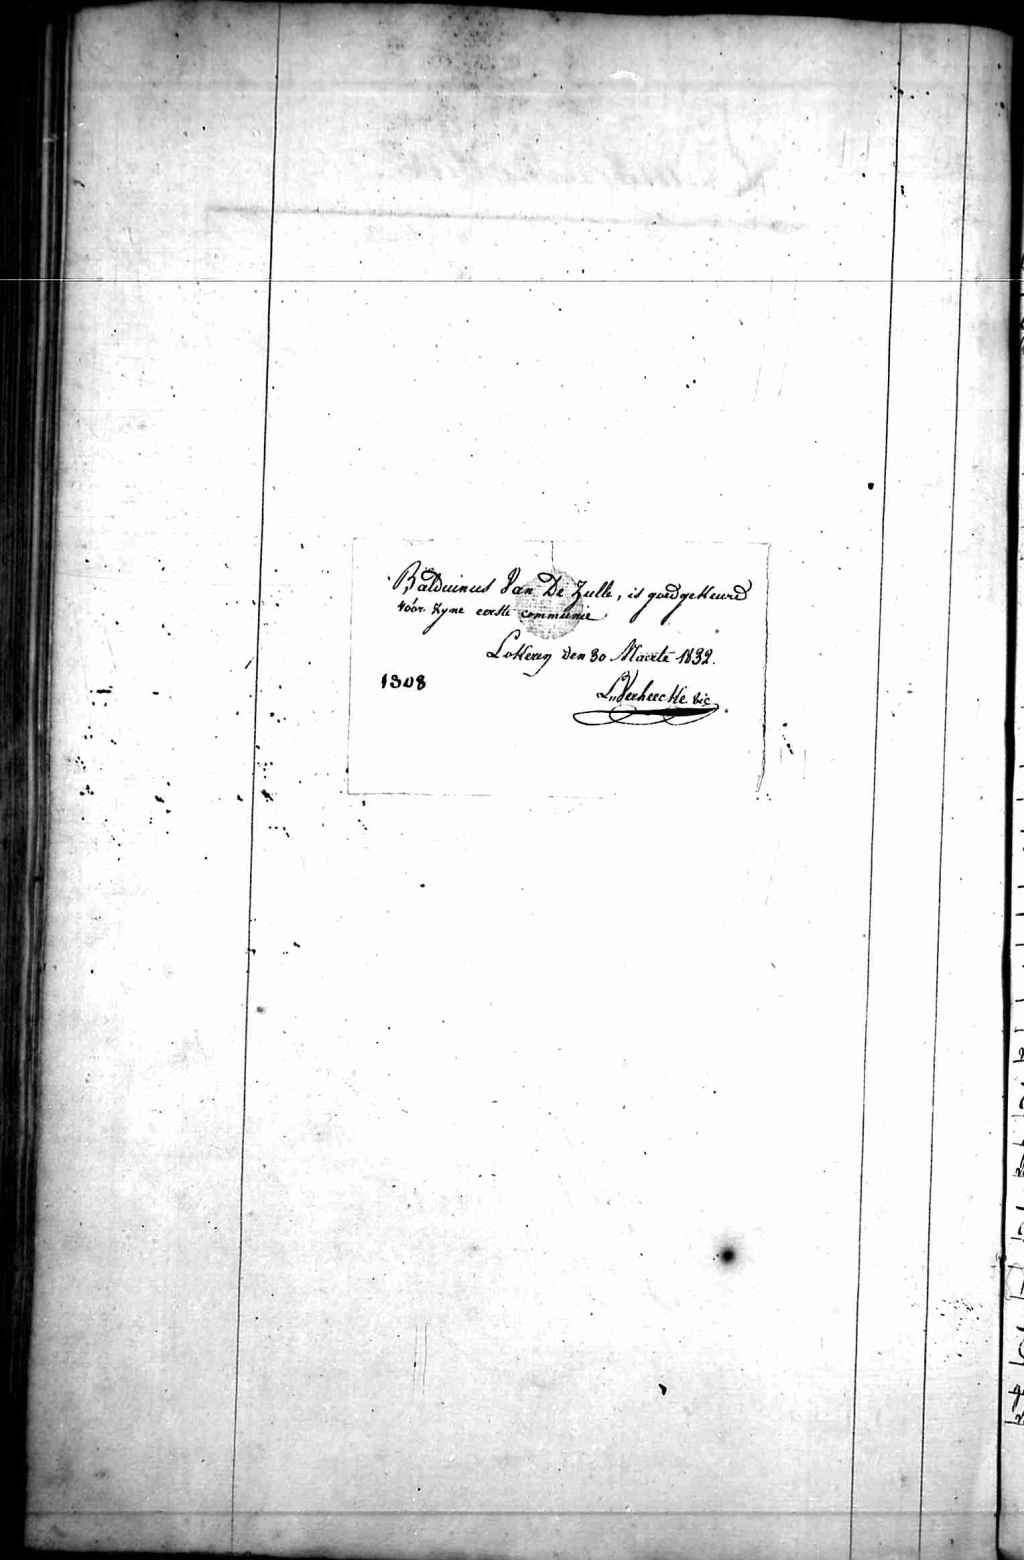 Balduinus Van De Zulle, is goedgekeurd
voor zyne eerste communie
Lokeren den 30 Maerte 1832.
1308
L. Verheecke vic